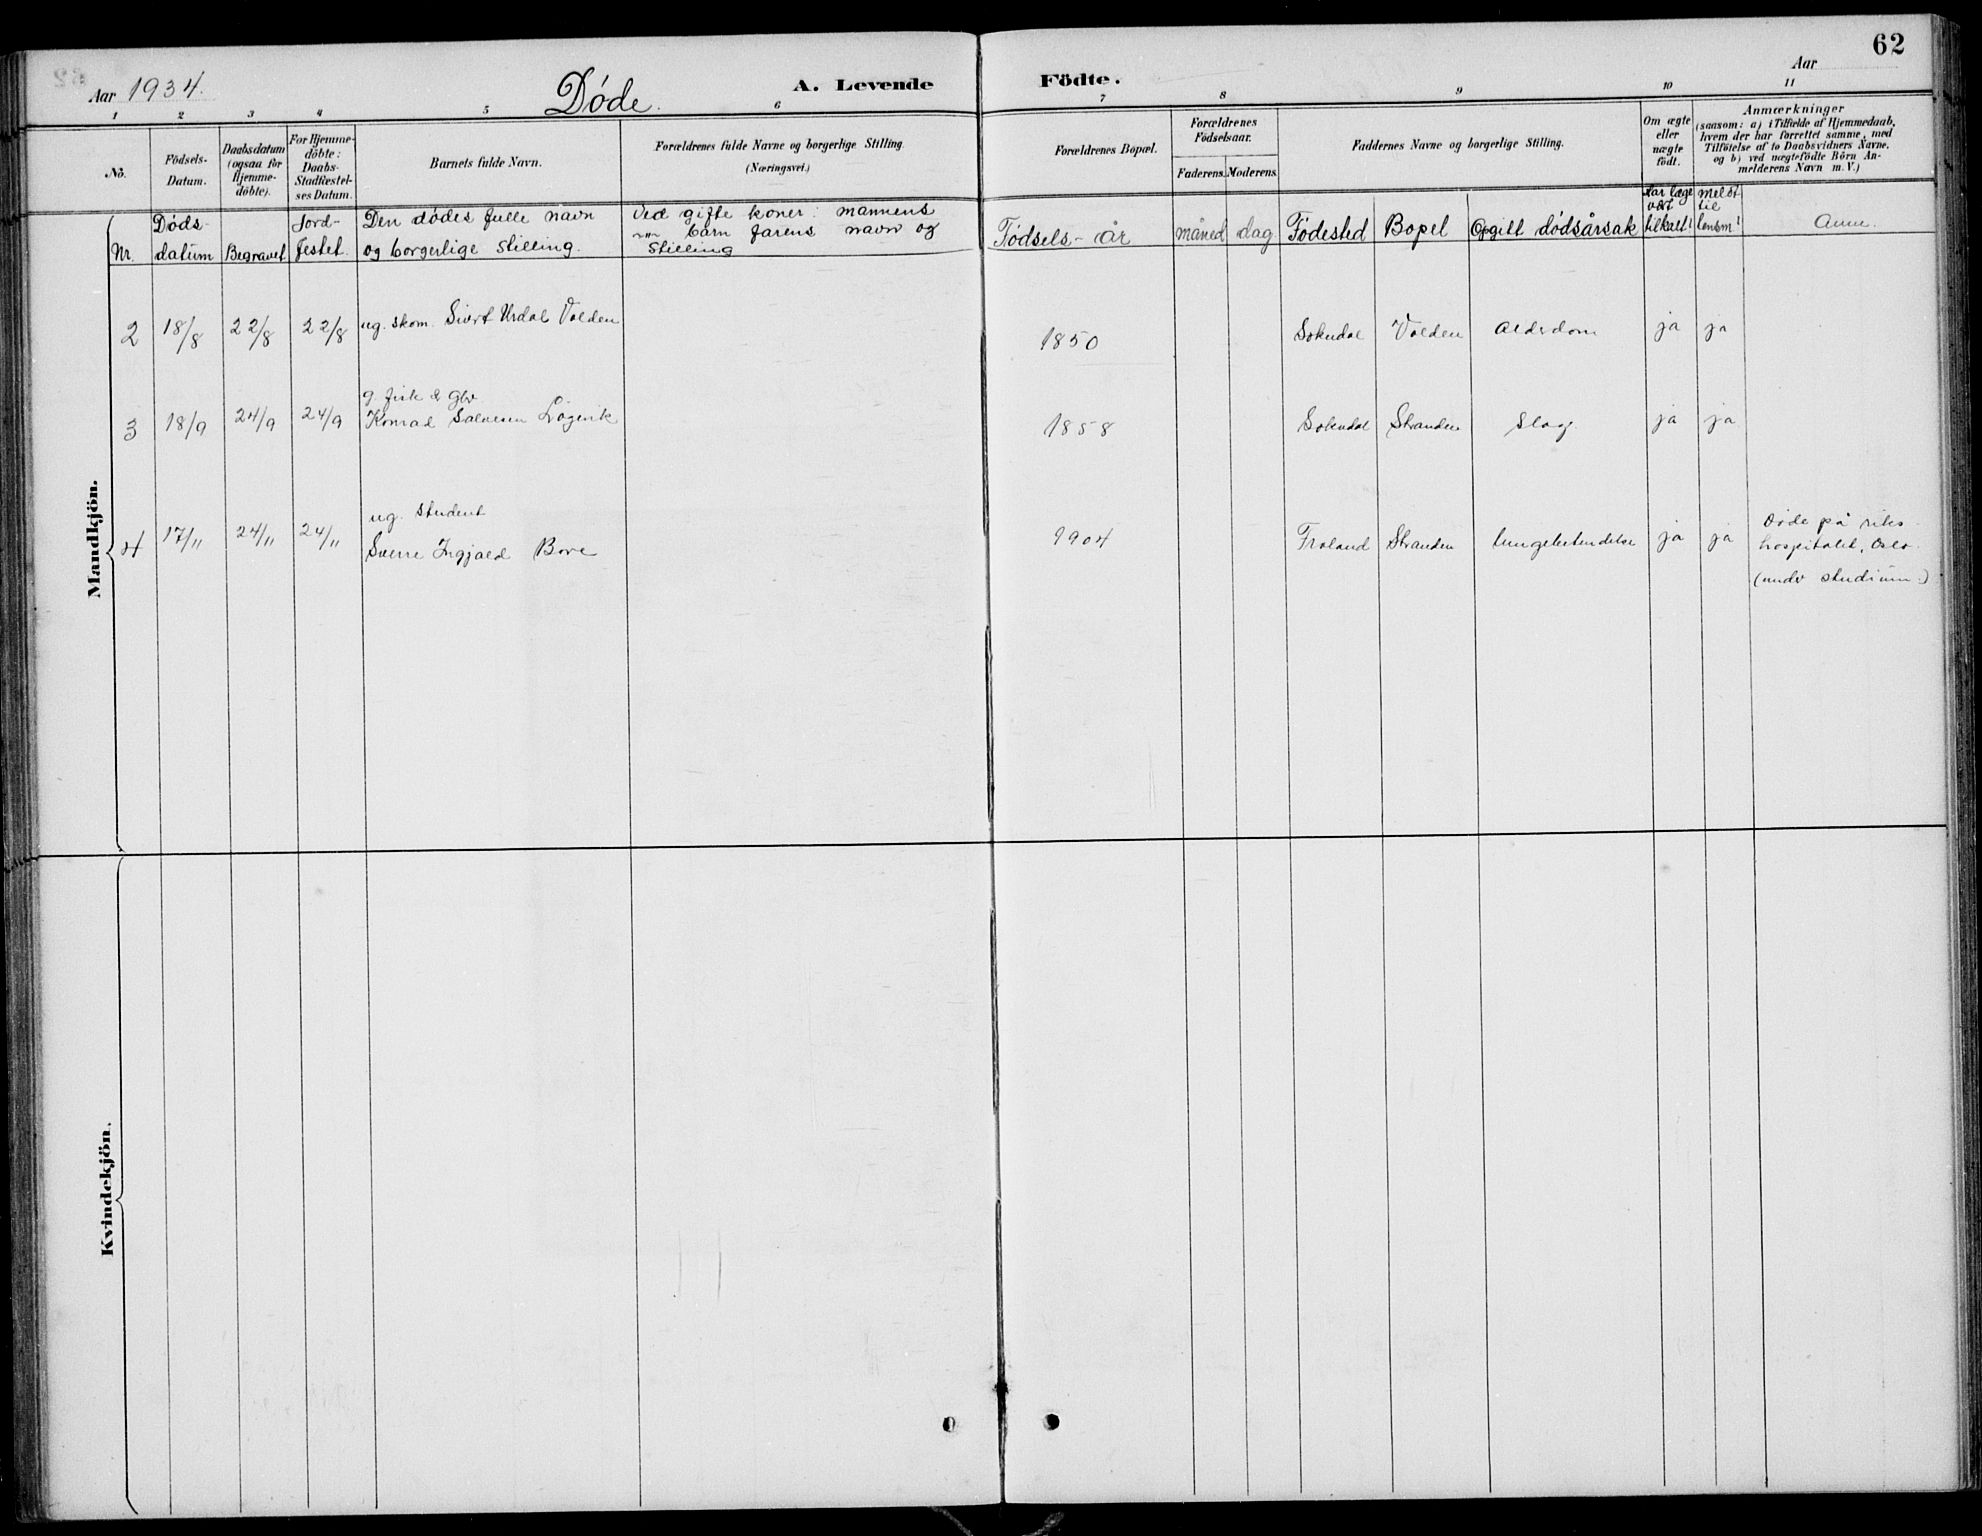 62
Aar 1934. Døde. A. Levende Födte. Aar
1 2 3 4 5 6 7 8 9 10 11
No.
Födsels-
Datum.
Daabsdatum
(ogsaa for
Hjemme-
döbte).
For Hjemme-
döbte:
Daabs-
Stadfæstel-
ses Datum.
Barnets fulde Navn.
Forældrenes fulde Navne og borgerlige Stilling.
(Næringsvei.)
Forældrenes Bopæl.
Forældrenes
Födselsaar.
Faderens. Moderens.
Faddernes Navne og borgerlige Stilling.
Om ægte
eller
uægte
födt.
Anmærkninger
(saasom: a) i Tilfælde af Hjemmedaab,
hvem der har forrettet samme, med
Tilföielse af to Daabsvidners Navne,
og b) ved uægtefödte Börn An-
melderens Navn m. V.)
Nr.
Døds-
datum
Begravet
Jord-
festet.
Den dødes fulle navn
og borgerlige stilling.
Ved gifte koner: mannens
barn farens navn og
stilling
Fødsels- år
måned
dag
Fødested
Bopel
Opgitt dødsårsak
Var læge
vært
tilkalt?
melst
til
lensm?
Anm.
Mandkjön.
2 18/8 22/8 22/8 ug. skom. Sivert Urdal Valden 1850 Sokndal Valden Alderdom ja ja
g. fisk & gbr
3 18/9 24/9 24/9 Konrad Salvesen Løgevik 1858 Sokndal Stranden Slag ja ja
ug. student
4 17/11 24/11 24/11 Sverre Ingjald Bove 1904 Froland Stranden lungebetendelse ja ja
Døde på riks-
hospitalet, Oslo.
(under studium.)
Kvindekjön.